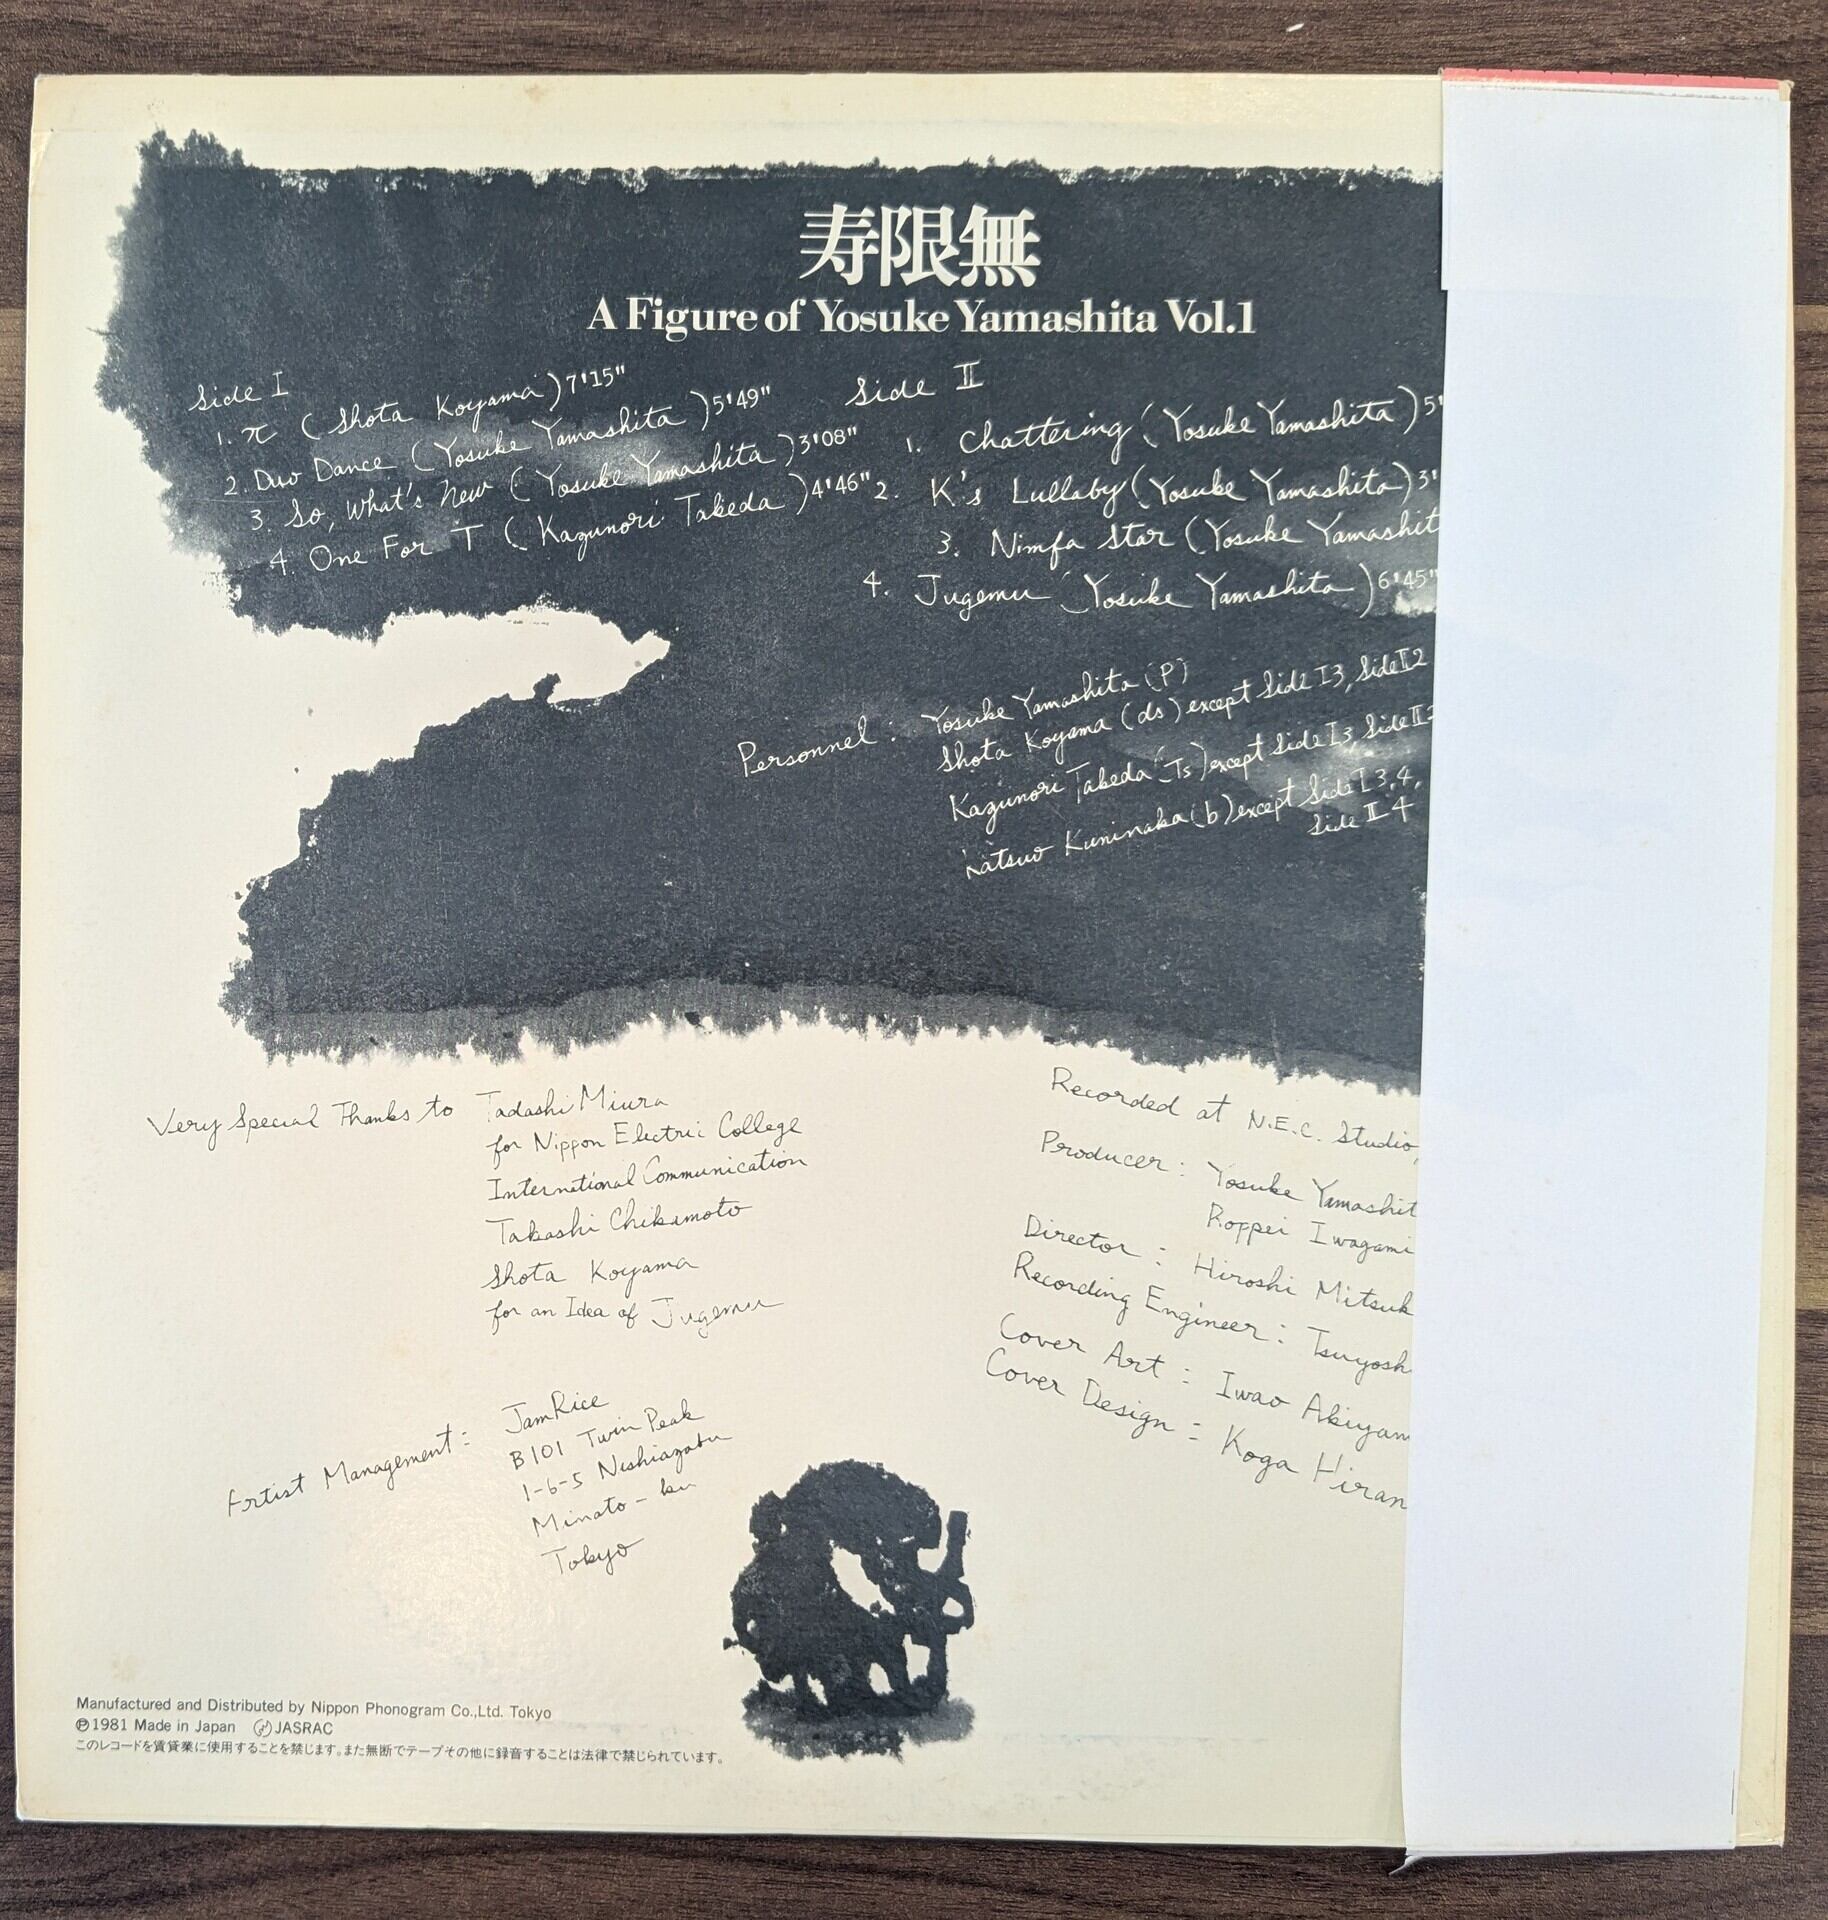 寿限無
A Figure of Yosuke Yamashita Vol.1
Side I
1. π (Shota Koyama) 7'15"
2. Duo Dance (Yosuke Yamashita) 5'49"
3. So, What's New (Yosuke Yamashita) 3'08"
4. One For T (Kazunori Takeda) 4'46"
Side II
1. Chattering (Yosuke Yamashita) 5'
2. K's Lullaby (Yosuke Yamashita) 3'
3. Nimfa Star (Yosuke Yamashit
4. Jugemu (Yosuke Yamashita) 6'45"
Personnel: Yosuke Yamashita (P)
Shota Koyama (ds) except Side I3, Side II2
Kazunori Takeda (Ts) except Side I3, Side II2
Katsuo Kuninaka (b) except Side I 3,4,
Side II 4
Very Special Thanks to Tadashi Miura
for Nippon Electric College
International Communication
Takashi Chikamoto
Shota Koyama
for an Idea of Jugemu
Artist Management: JamRice
B101 Twin Peak
1-6-5 Nishiazabu
Minato-ku
Tokyo
Recorded at N.E.C. Studio,
Producer: Yosuke Yamashit
Roppei Iwagami
Director: Hiroshi Mitsuk
Recording Engineer: Tsuyosh
Cover Art: Iwao Akiyam
Cover Design: Koga Hiran
Manufactured and Distributed by Nippon Phonogram Co.,Ltd. Tokyo
℗1981 Made in Japan JASRAC
このレコードを賃貸業に使用することを禁じます。また無断でテープその他に録音することは法律で禁じられています。